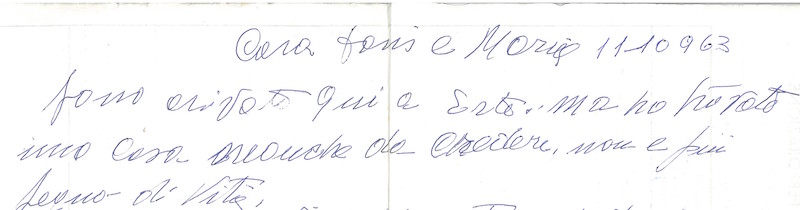 Cara e Maria 11 10 963
sono arivato qui a Erto. ma ho trovato
una cosa neanche da credere, non e più
segno di vita,